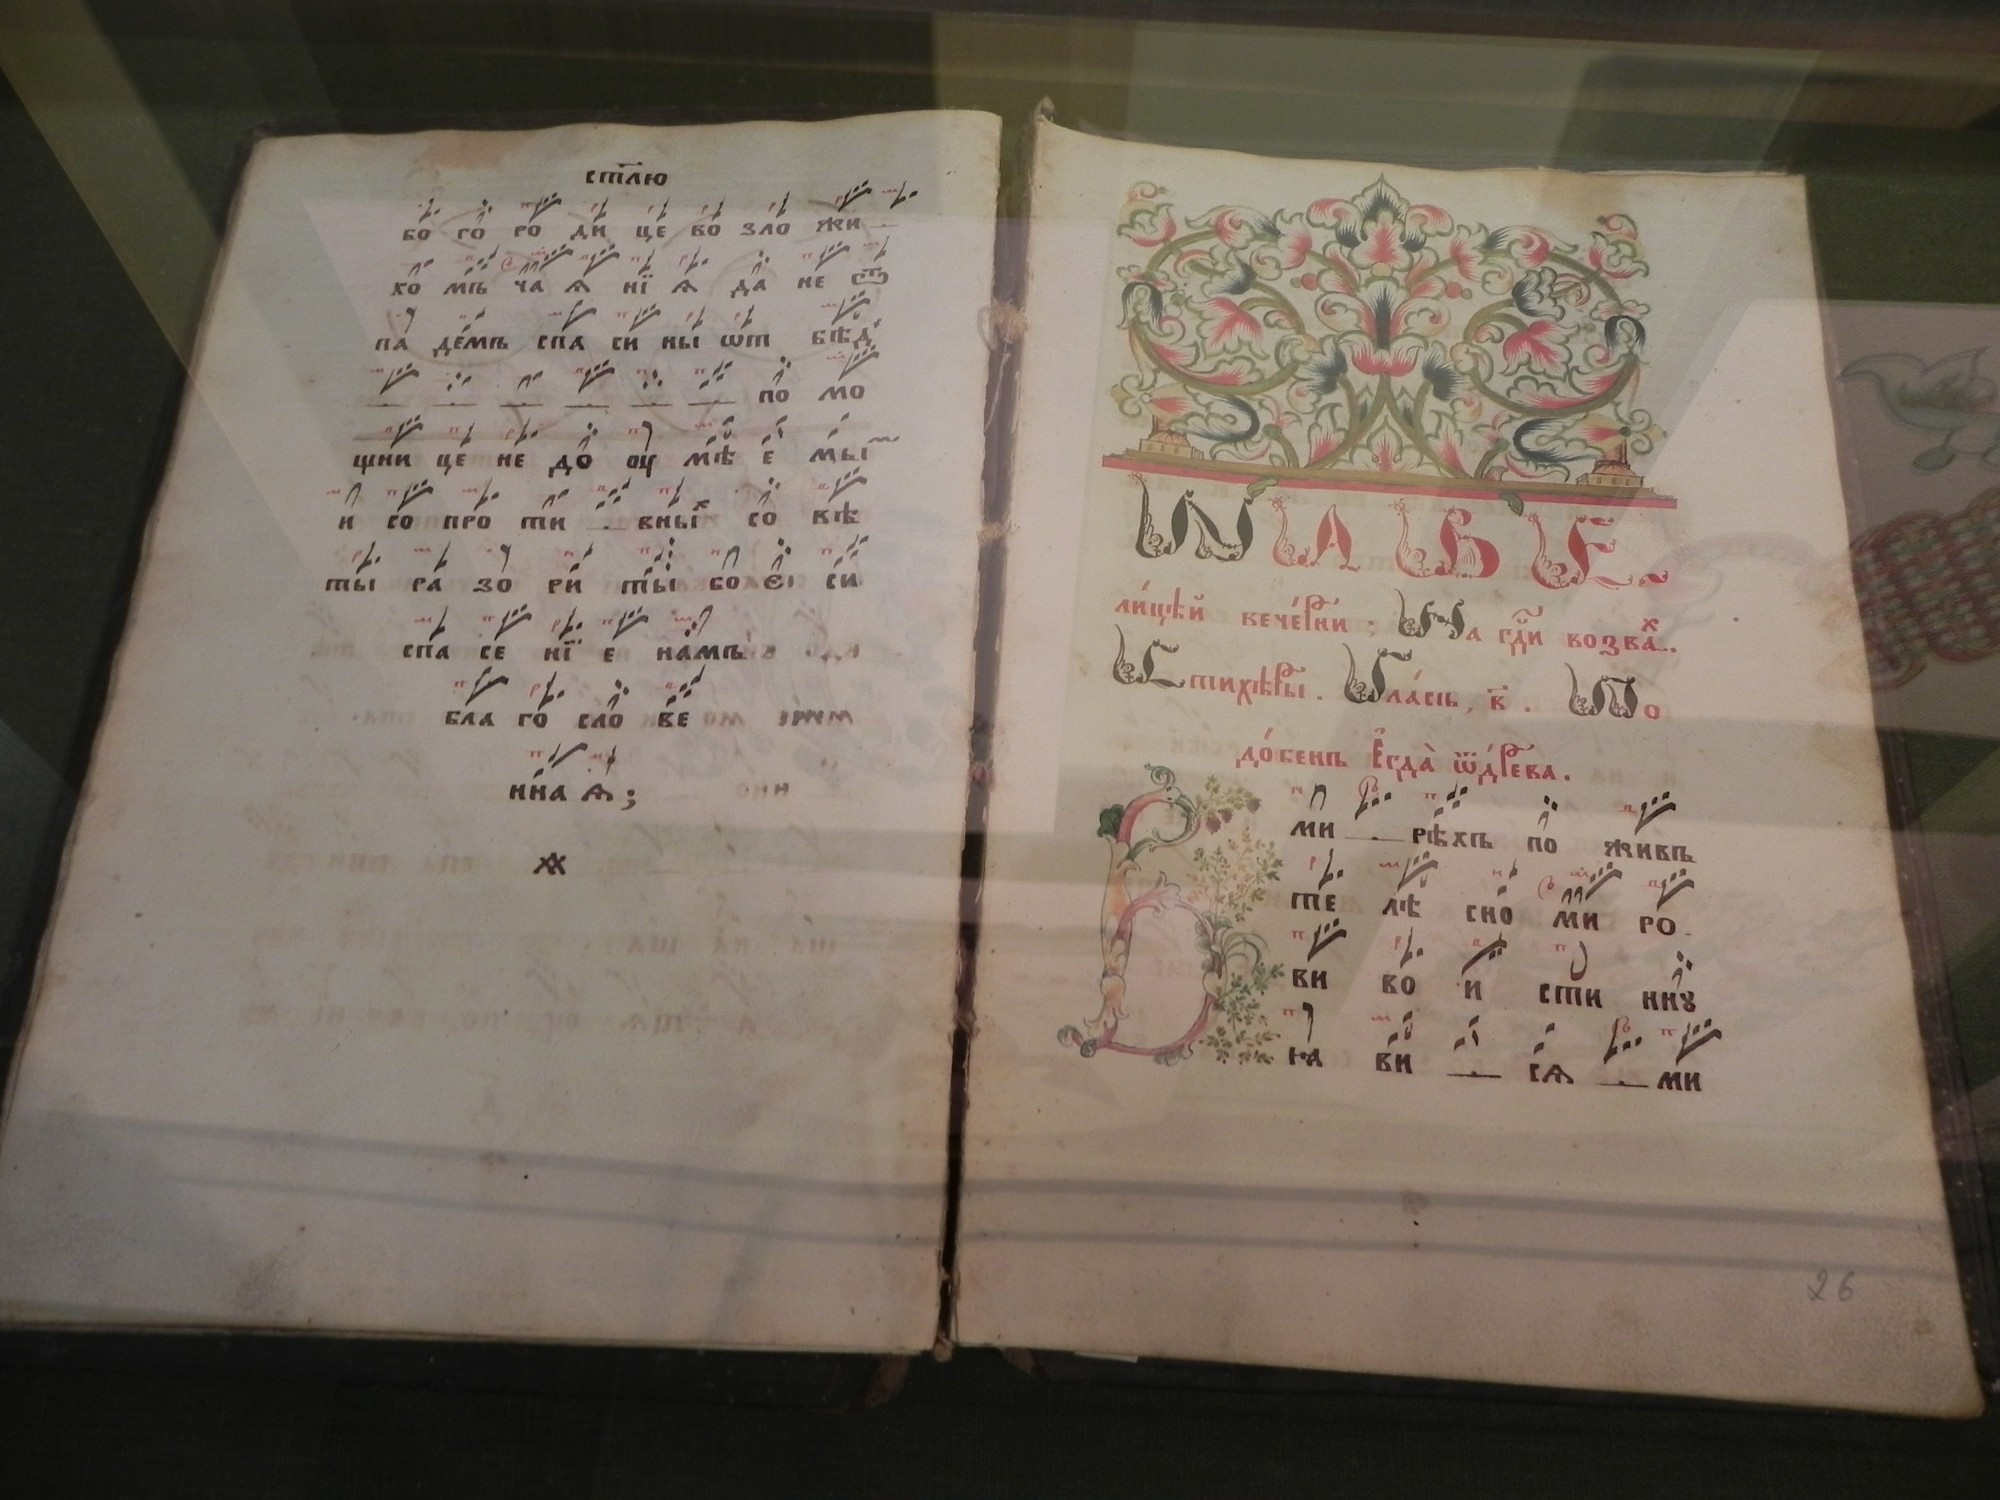 стлю
бо го ро ди це во зло жи
хо мъ ча ѧ нї ѧ да не ѿ
па де́мъ спа си ны ѡт бѣд
по мо
щни це не до оу мѣ е мы
и со про ти вных со вѣ
ты ра зо ри ты бо єі си
спа се нї е на́мъ
бла го сло ве
нна ѧ ;
НАВЕ.
ли́цѣй вече́рни ; На гд҇и возва х.
Стихѣры. Гла́съ, в҃. По
до́бенъ Егда̀ ѿдре́ва.
В
ми рѣхъ по живъ
те лѣ сно ми ро
ви во и сти нну
на ви сѧ ми
26